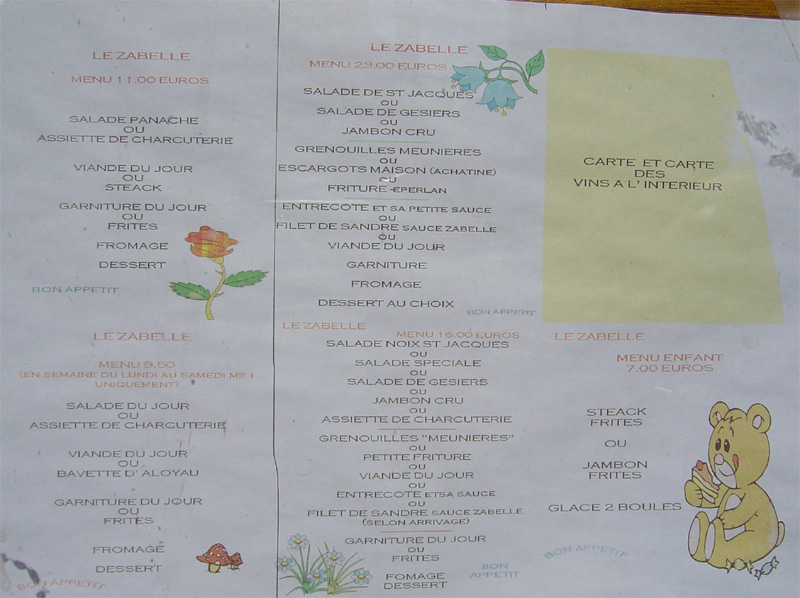 LE ZABELLE
MENU 11.00 EUROS
SALADE PANACHE
OU
ASSIETTE DE CHARCUTERIE
VIANDE DU JOUR
OU
STEACK
GARNITURE DU JOUR
OU
FRITES
FROMAGE
DESSERT
BON APPETIT
LE ZABELLE
MENU 9.50
(EN SEMAINE DU LUNDI AU SAMEDI
UNIQUEMENT)
SALADE DU JOUR
OU
ASSIETTE DE CHARCUTERIE
VIANDE DU JOUR
OU
BAVETTE D' ALOYAU
GARNITURE DU JOUR
OU
FRITES
FROMAGE
DESSERT
BON APPETIT
LE ZABELLE
MENU 23.00 EUROS
SALADE DE ST JACQUES
OU
SALADE DE GESIERS
OU
JAMBON CRU
GRENOUILLES MEUNIERES
OU
ESCARGOTS MAISON (ACHATINE)
OU
FRITURE -EPERLAN
ENTRECOTE ET SA PETITE SAUCE
OU
FILET DE SANDRE SAUCE ZABELLE
OU
VIANDE DU JOUR
GARNITURE
FROMAGE
DESSERT AU CHOIX
BON APPETIT
LE ZABELLE
MENU 16.00 EUROS
SALADE NOIX ST JACQUES
OU
SALADE SPECIALE
OU
SALADE DE GESIERS
OU
JAMBON CRU
OU
ASSIETTE DE CHARCUTERIE
GRENOUILLES "MEUNIERES"
OU
PETITE FRITURE
OU
VIANDE DU JOUR
OU
ENTRECOTE ETSA SAUCE
OU
FILET DE SANDRE SAUCE ZABELLE
(SELON ARRIVAGE)
GARNITURE DU JOUR
OU
FRITES
FOMAGE
DESSERT
BON
APPETIT
CARTE ET CARTE
DES
VINS A L' INTERIEUR
LE ZABELLE
MENU ENFANT
7.00 EUROS
STEACK
FRITES
OU
JAMBON
FRITES
GLACE 2 BOULES
BON APPETIT